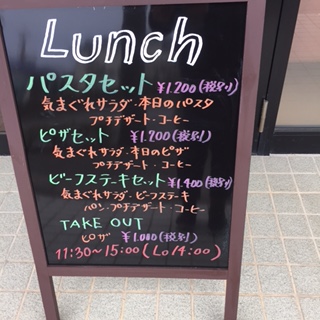 Lunch
パスタセット ¥1.200(税別)
気まぐれサラダ・本日のパスタ
プチデザート・コーヒー
ピザセット ¥1.200(税別)
気まぐれサラダ・本日のピザ
プチデザート・コーヒー
ビーフステーキセット ¥1.400(税別)
気まぐれサラダ・ビーフステーキ
パン・プチデザート・コーヒー
TAKE OUT
ピザ ¥1.000(税別)
11:30~15:00(Lo14:00)